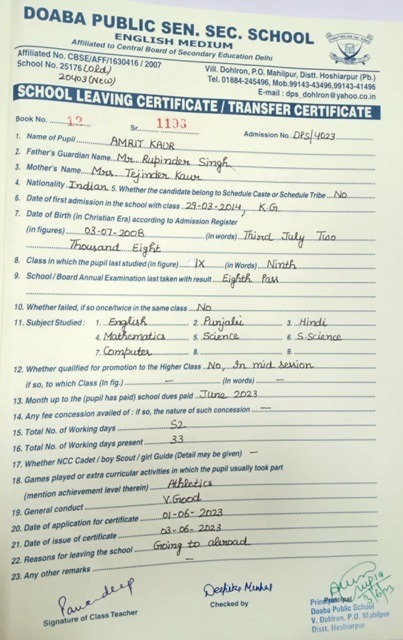 DOABA PUBLIC SEN. SEC. SCHOOL
ENGLISH MEDIUM
Affiliated to Central Board of Secondary Education Delhi
Affiliated No. CBSE/AFF/1630416 / 2007
School No. 25176 (old)
20403 (New)
Vill. Dohlron, P.O. Mahilpur, Distt. Hoshiarpur (Pb.)
Tel. 01884-245496, Mob.99143-43496,99143-41496
E-mail : dps_dohlron@yahoo.co.in
SCHOOL LEAVING CERTIFICATE / TRANSFER CERTIFICATE
Book No. 12 Sr. 1193 Admission No. DPS/4023
1. Name of Pupil AMRIT KAUR
2. Father's Guardian Name Mr. Rupinder Singh
3. Mother's Name Mrs. Tejinder Kaur
4. Nationality Indian 5. Whether the candidate belong to Schedule Caste or Schedule Tribe No
6. Date of first admission in the school with class 29-03-2014, K.G.
7. Date of Birth (in Christian Era) according to Admission Register
(in figures) 03-07-2008 (in words) Third July Two
Thousand Eight
8. Class in which the pupil last studied (in figure) IX (in Words) Ninth
9. School / Board Annual Examination last taken with result Eighth Pass
10. Whether failed, if so once/twice in the same class No
11. Subject Studied : 1. English 2. Punjabi 3. Hindi
4. Mathematics 5. Science 6. S.Science
7. Computer 8. 9.
12. Whether qualified for promotion to the Higher Class No, In mid session
if so, to which Class (In fig.) — (In words) —
13. Month up to the (pupil has paid) school dues paid June 2023
14. Any fee concession availed of : if so, the nature of such concession —
15. Total No. of Working days 52
16. Total No. of Working days present 33
17. Whether NCC Cadet / boy Scout / girl Guide (Detail may be given) —
18. Games played or extra curricular activities in which the pupil usually took part
(mention achievement level therein) Athletics
19. General conduct V.Good
20. Date of application for certificate 01-06-2023
21. Date of issue of certificate 03-06-2023
22. Reasons for leaving the school Going to abroad
23. Any other remarks —
Signature of Class Teacher
Checked by
Principal
Doaba Public School
V. Dohlron, P.O. Mahilpur
Distt. Hoshiarpur